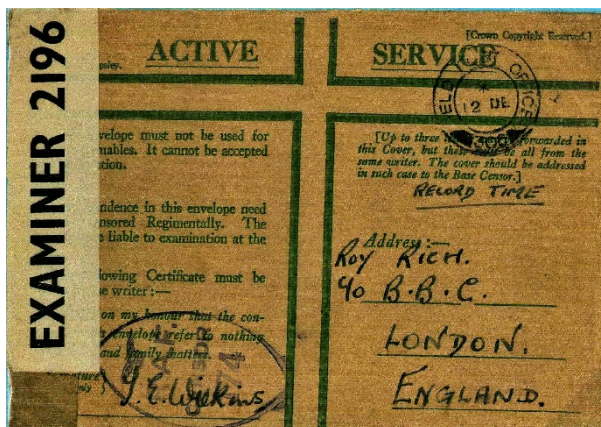 EXAMINER 2196
ACTIVE SERVICE
[Crown Copyright Reserved.]
velope must not be used for
uables. It cannot be accepted
tion.
ndence in this envelope need
nsored Regimentally. The
e liable to examination at the
lowing Certificate must be
e writer :—
on my honour that the con-
s envelope refer to nothing
and family matters.
T. E. Wilkins
FIELD POST OFFICE
12 DE
399
[Up to three forwarded in
this Cover, but these be all from the
same writer. The cover should be addressed
in such case to the Base Censor.]
RECORD TIME
Address :—
ROY RICH.
c/o B.B.C.
LONDON.
ENGLAND.